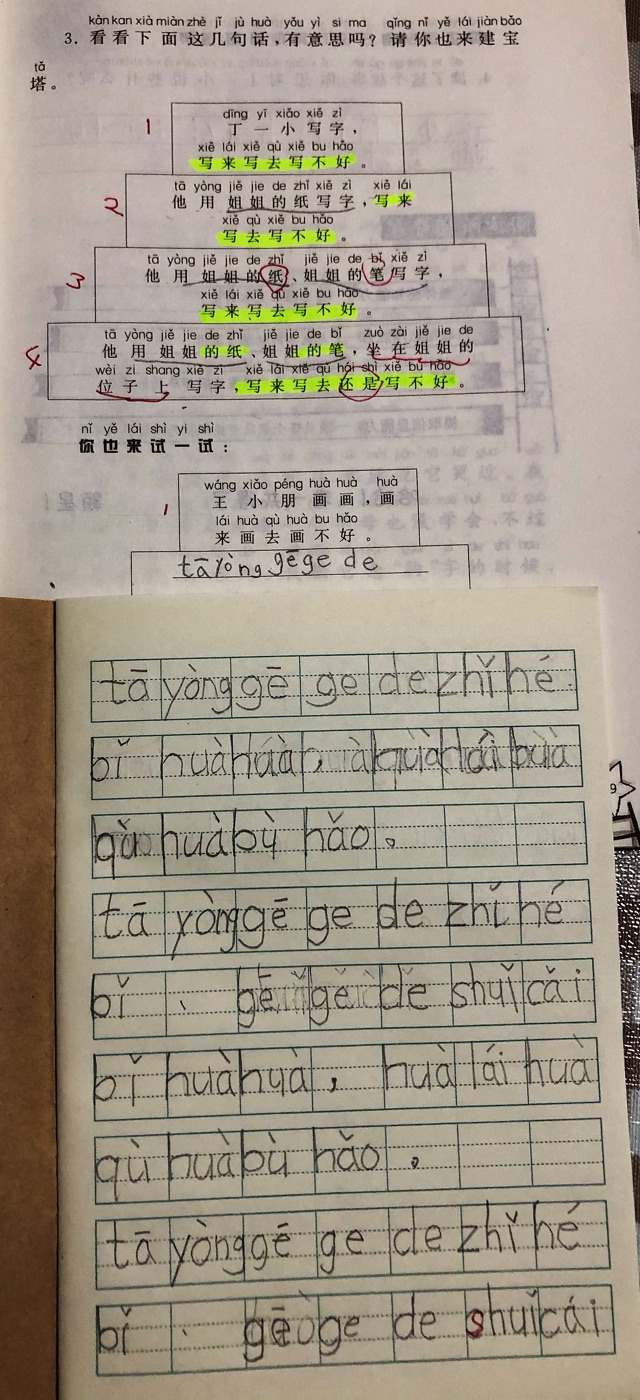 kàn kan xià miàn zhè jǐ jù huà yǒu yì si ma qǐng nǐ yě lái jiàn bǎo
3. 看看下面这几句话,有意思吗?请你也来建宝
tǎ
塔。
dīng yī xiǎo xiě zì
1 丁一小写字,
xiě lái xiě qù xiě bu hǎo
写来写去写不好。
tā yòng jiě jie de zhǐ xiě zì xiě lái
2 他用姐姐的纸写字,写来
xiě qù xiě bu hǎo
写去写不好。
tā yòng jiě jie de zhǐ jiě jie de bǐ xiě zì
3 他用姐姐的纸、姐姐的笔写字,
xiě lái xiě qù xiě bu hǎo
写来写去写不好。
tā yòng jiě jie de zhǐ jiě jie de bǐ zuò zài jiě jie de
4 他用姐姐的纸、姐姐的笔,坐在姐姐的
wèi zi shang xiě zì xiě lái xiě qù hái shì xiě bu hǎo
位子上写字,写来写去还是写不好。
nǐ yě lái shì yi shì
你也来试一试:
wáng xiǎo péng huà huà huà
1 王小朋画画,画
lái huà qù huà bu hǎo
来画去画不好。
tā yòng gē ge de
tā yòng gē ge de zhǐ hé
bǐ huà huà, huà lái huà
qù huà bù hǎo。
tā yòng gē ge de zhǐ hé
bǐ 、 gē ge de shuǐ cǎi
bǐ huà huà, huà lái huà
qù huà bù hǎo。
tā yòng gē ge de zhǐ hé
bǐ 、 gē ge de shuǐ cái